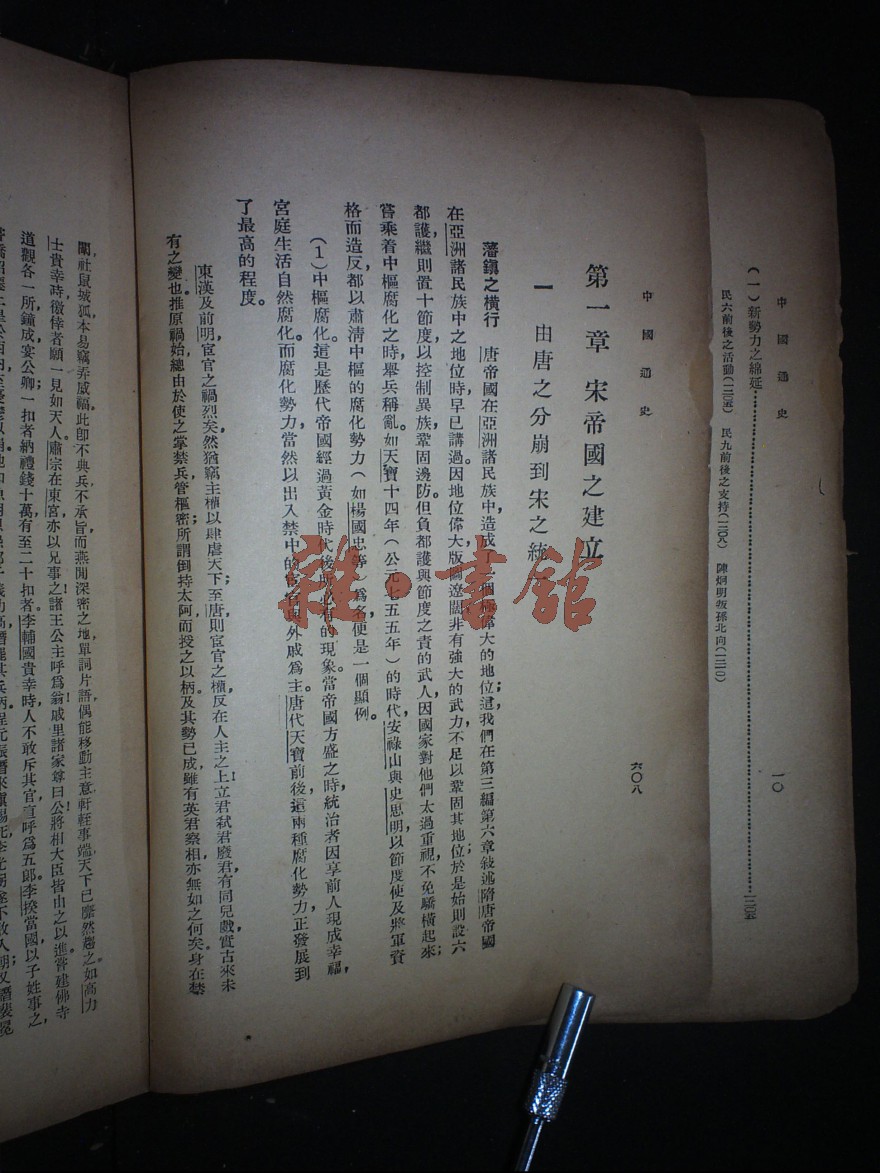 中國通史
一〇
(一)新勢力之綿延……三〇五
民六前後之活動(三〇五) 民九前後之支持(三〇八) 陳炯明叛孫北向(三一〇)
中國通史
六〇八
第一章 宋帝國之建立
一 由唐之分崩到宋之統
藩鎮之橫行 唐帝國在亞洲諸民族中,造成一個極偉大的地位;這,我們在第三編第六章敍述隋唐帝國
在亞洲諸民族中之地位時,早已講過。因地位偉大,版圖遼闊,非有強大的武力,不足以鞏固其地位,於是始則設六
都護,繼則置十節度,以控制異族,鞏固邊防。但負都護與節度之責的武人,因國家對他們太過重視,不免驕橫起來;
嘗乘着中樞腐化之時,舉兵稱亂。如天寶十四年(公元七五五年)的時代,安祿山與史思明以節度使及將軍資
格而造反,都以肅清中樞的腐化勢力(如楊國忠等)爲名,便是一個顯例。
(1)中樞腐化。這是歷代帝國經過黃金時代後所必有的現象。當帝國方盛之時,統治者因享前人現成幸福,
宮庭生活自然腐化。而腐化勢力,當然以出入禁中的宦官與外戚爲主。唐代天寶前後,這兩種腐化勢力正發展到
了最高的程度。
東漢及前明,宦官之禍烈矣,然猶竊主權以肆虐天下;至唐則宦官之權,反在人主之上,立君弒君廢君,有同兒戲,實古來未
有之變也。推原禍始,總由於使之掌禁兵,管樞密,所謂倒持太阿而授之以柄,及其勢已成,雖有英君察相,亦無如之何矣。身在禁
闈,社鼠城狐,本易竊弄威福,此卽不典兵不承旨,而燕閒深密之地,單詞片語,偶能移動主意,軒輊事端,天下已靡然趨之。如高力
士貴幸時,徼倖者願一見如天人;肅宗在東宮,亦以兄事之;諸王公主呼爲翁;戚里諸家尊曰公;將相大臣皆由之以進。嘗建佛寺
道觀各一所,鐘成,宴公卿,一扣者納禮錢十萬,有至二十扣者。李輔國貴幸時,人不敢斥其官,直呼爲五郎;李揆當國,以子姓事之,